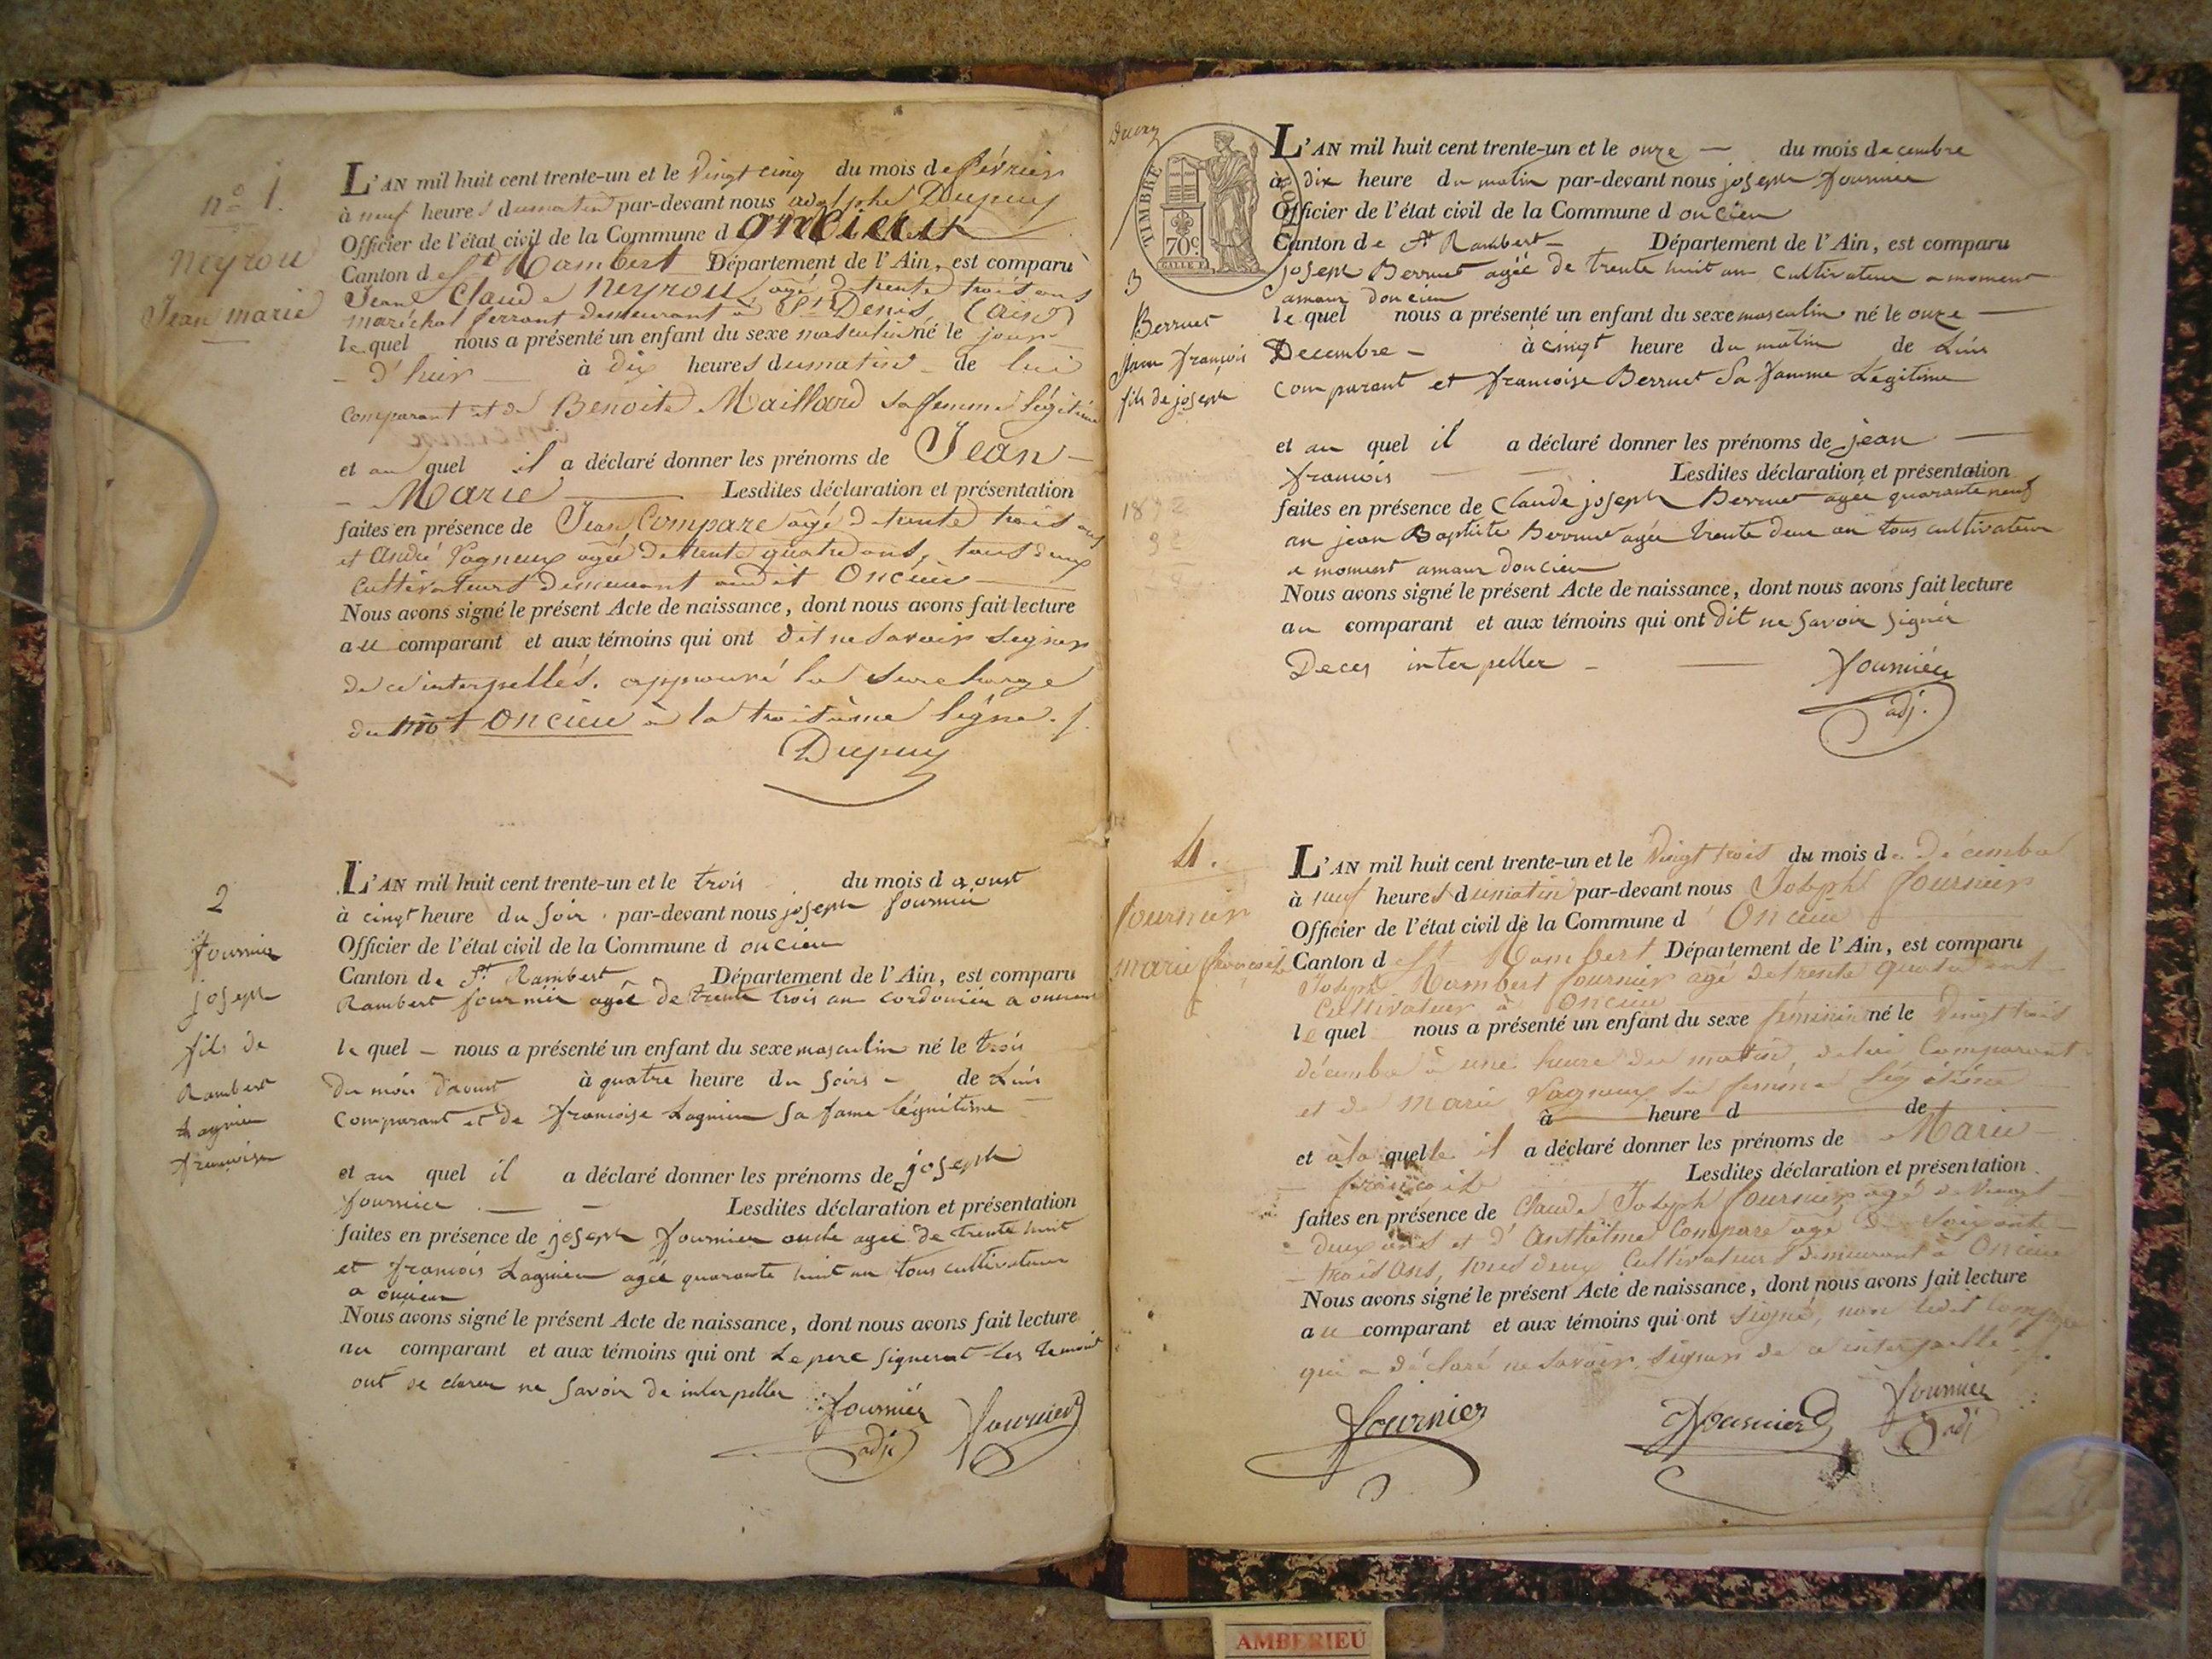 n° 1.
Neyrou
Jean marie
L'AN mil huit cent trente-un et le Vingt cinq du mois de février
à neuf heures du matin par-devant nous adolphe Dupuy
Officier de l'état civil de la Commune d oncieu
Canton de St Rambert Département de l'Ain, est comparu
Jean Claude Neyrou agé de trente trois ans
maréchal ferrant demeurant à St Denis, (ain)
lequel nous a présenté un enfant du sexe masculin né le jour
d'hier à dix heures du matin de lui
comparant et de Benoite Maillard sa femme légitime
et au quel il a déclaré donner les prénoms de Jean
Marie Lesdites déclaration et présentation
faites en présence de Jean Compare âgé de trente trois ans
et André Vagneux agé de trente quatre ans, tous deux
cultivateurs demeurant audit Oncieu
Nous avons signé le présent Acte de naissance, dont nous avons fait lecture
au comparant et aux témoins qui ont dit ne savoir signer
de ce interpellés. approuvé la surcharge
du mot Oncieu à la troisième ligne.
Dupuy
2
fournier
joseph
fils de
Rambert
Lagnieu
francoise
L'AN mil huit cent trente-un et le trois du mois d aoust
à cinqt heure du soir par-devant nous joseph fournier
Officier de l'état civil de la Commune d oncieu
Canton de St Rambert Département de l'Ain, est comparu
Rambert fournier agée de trente trois an cordonnier a oncieu
le quel nous a présenté un enfant du sexe masculin né le trois
du mois d'aoust à quatre heure du soirs de Luis
comparant et de francoise Lagnieu sa fame légnitime
et au quel il a déclaré donner les prénoms de joseph
fournier Lesdites déclaration et présentation
faites en présence de joseph fournier oncle agée de trente huit
et francois Lagnieu agée quarante huit an tous cultivateur
a oncieu
Nous avons signé le présent Acte de naissance, dont nous avons fait lecture
au comparant et aux témoins qui ont Le pere signerat les temoint
ont de clarer ne savoir de interpeller
fournier
adj
fournier
TIMBRE ROYAL
70 c
3
Berruet
Jean françois
fils de joseph
L'AN mil huit cent trente-un et le onze du mois decembre
à dix heure du matin par-devant nous joseph fournier
Officier de l'état civil de la Commune d oncieu
Canton de St Rambert Département de l'Ain, est comparu
joseph Berruet agée de trente huit an cultivateur a moment
amaur doncieu
le quel nous a présenté un enfant du sexe masculin né le onze
Decembre à cinqt heure du matin de Luis
comparant et francoise Berruet sa famme Legitime
et au quel il a déclaré donner les prénoms de jean
francois Lesdites déclaration et présentation
faites en présence de Claude joseph Berruet agée quarante neuf
an jean Baptiste Berruet agée trente deux an tous cultivateur
a moment amaur doncieu
Nous avons signé le présent Acte de naissance, dont nous avons fait lecture
au comparant et aux témoins qui ont dit ne savoir signer
Deces interpeller
fournier
adj.
4.
fournier
marie françoise
L'AN mil huit cent trente-un et le Vingt trois du mois de décembre
à neuf heures du matin par-devant nous Joseph fournier
Officier de l'état civil de la Commune d'Oncieu
Canton de St Rambert Département de l'Ain, est comparu
Joseph Rambert fournier agé de trente quatre ans
Cultivateur à Oncieu
lequel nous a présenté un enfant du sexe féminin né le Vingt trois
décembre à une heure du matin, de lui Comparant
et de marie Vagneux sa femme légitime
à heure d de
et à la quelle il a déclaré donner les prénoms de Marie
françoise Lesdites déclaration et présentation
faites en présence de Claude Joseph fournier agé de Vingt
deux ans et d'Anthelme Compare agé de soixante
trois ans, tous deux Cultivateurs demeurant à Oncieu
Nous avons signé le présent Acte de naissance, dont nous avons fait lecture
au comparant et aux témoins qui ont signé, non ledit Compare
qui a déclaré ne savoir signer de ce interpellé.
fournier
fournier
fournier
adj
AMBERIEU